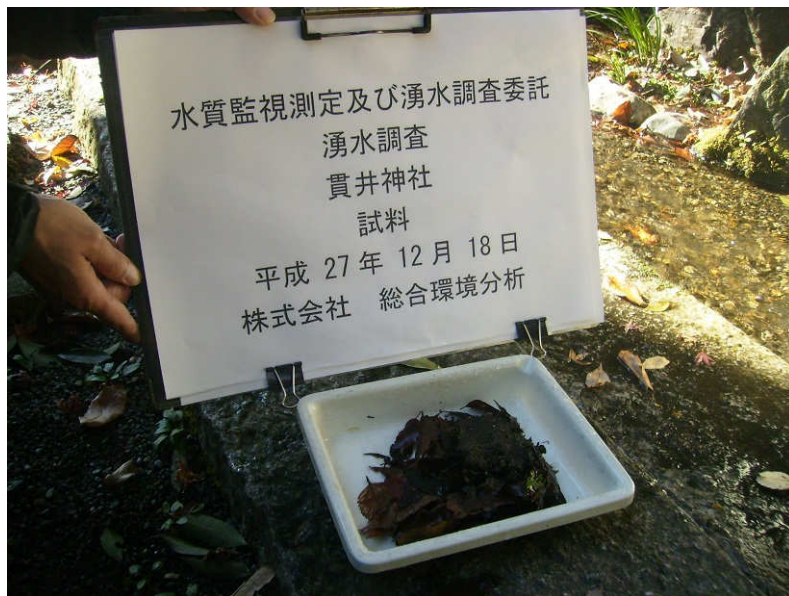 水質監視測定及び湧水調査委託
湧水調査
貫井神社
試料
平成 27年 12月 18日
株式会社 総合環境分析